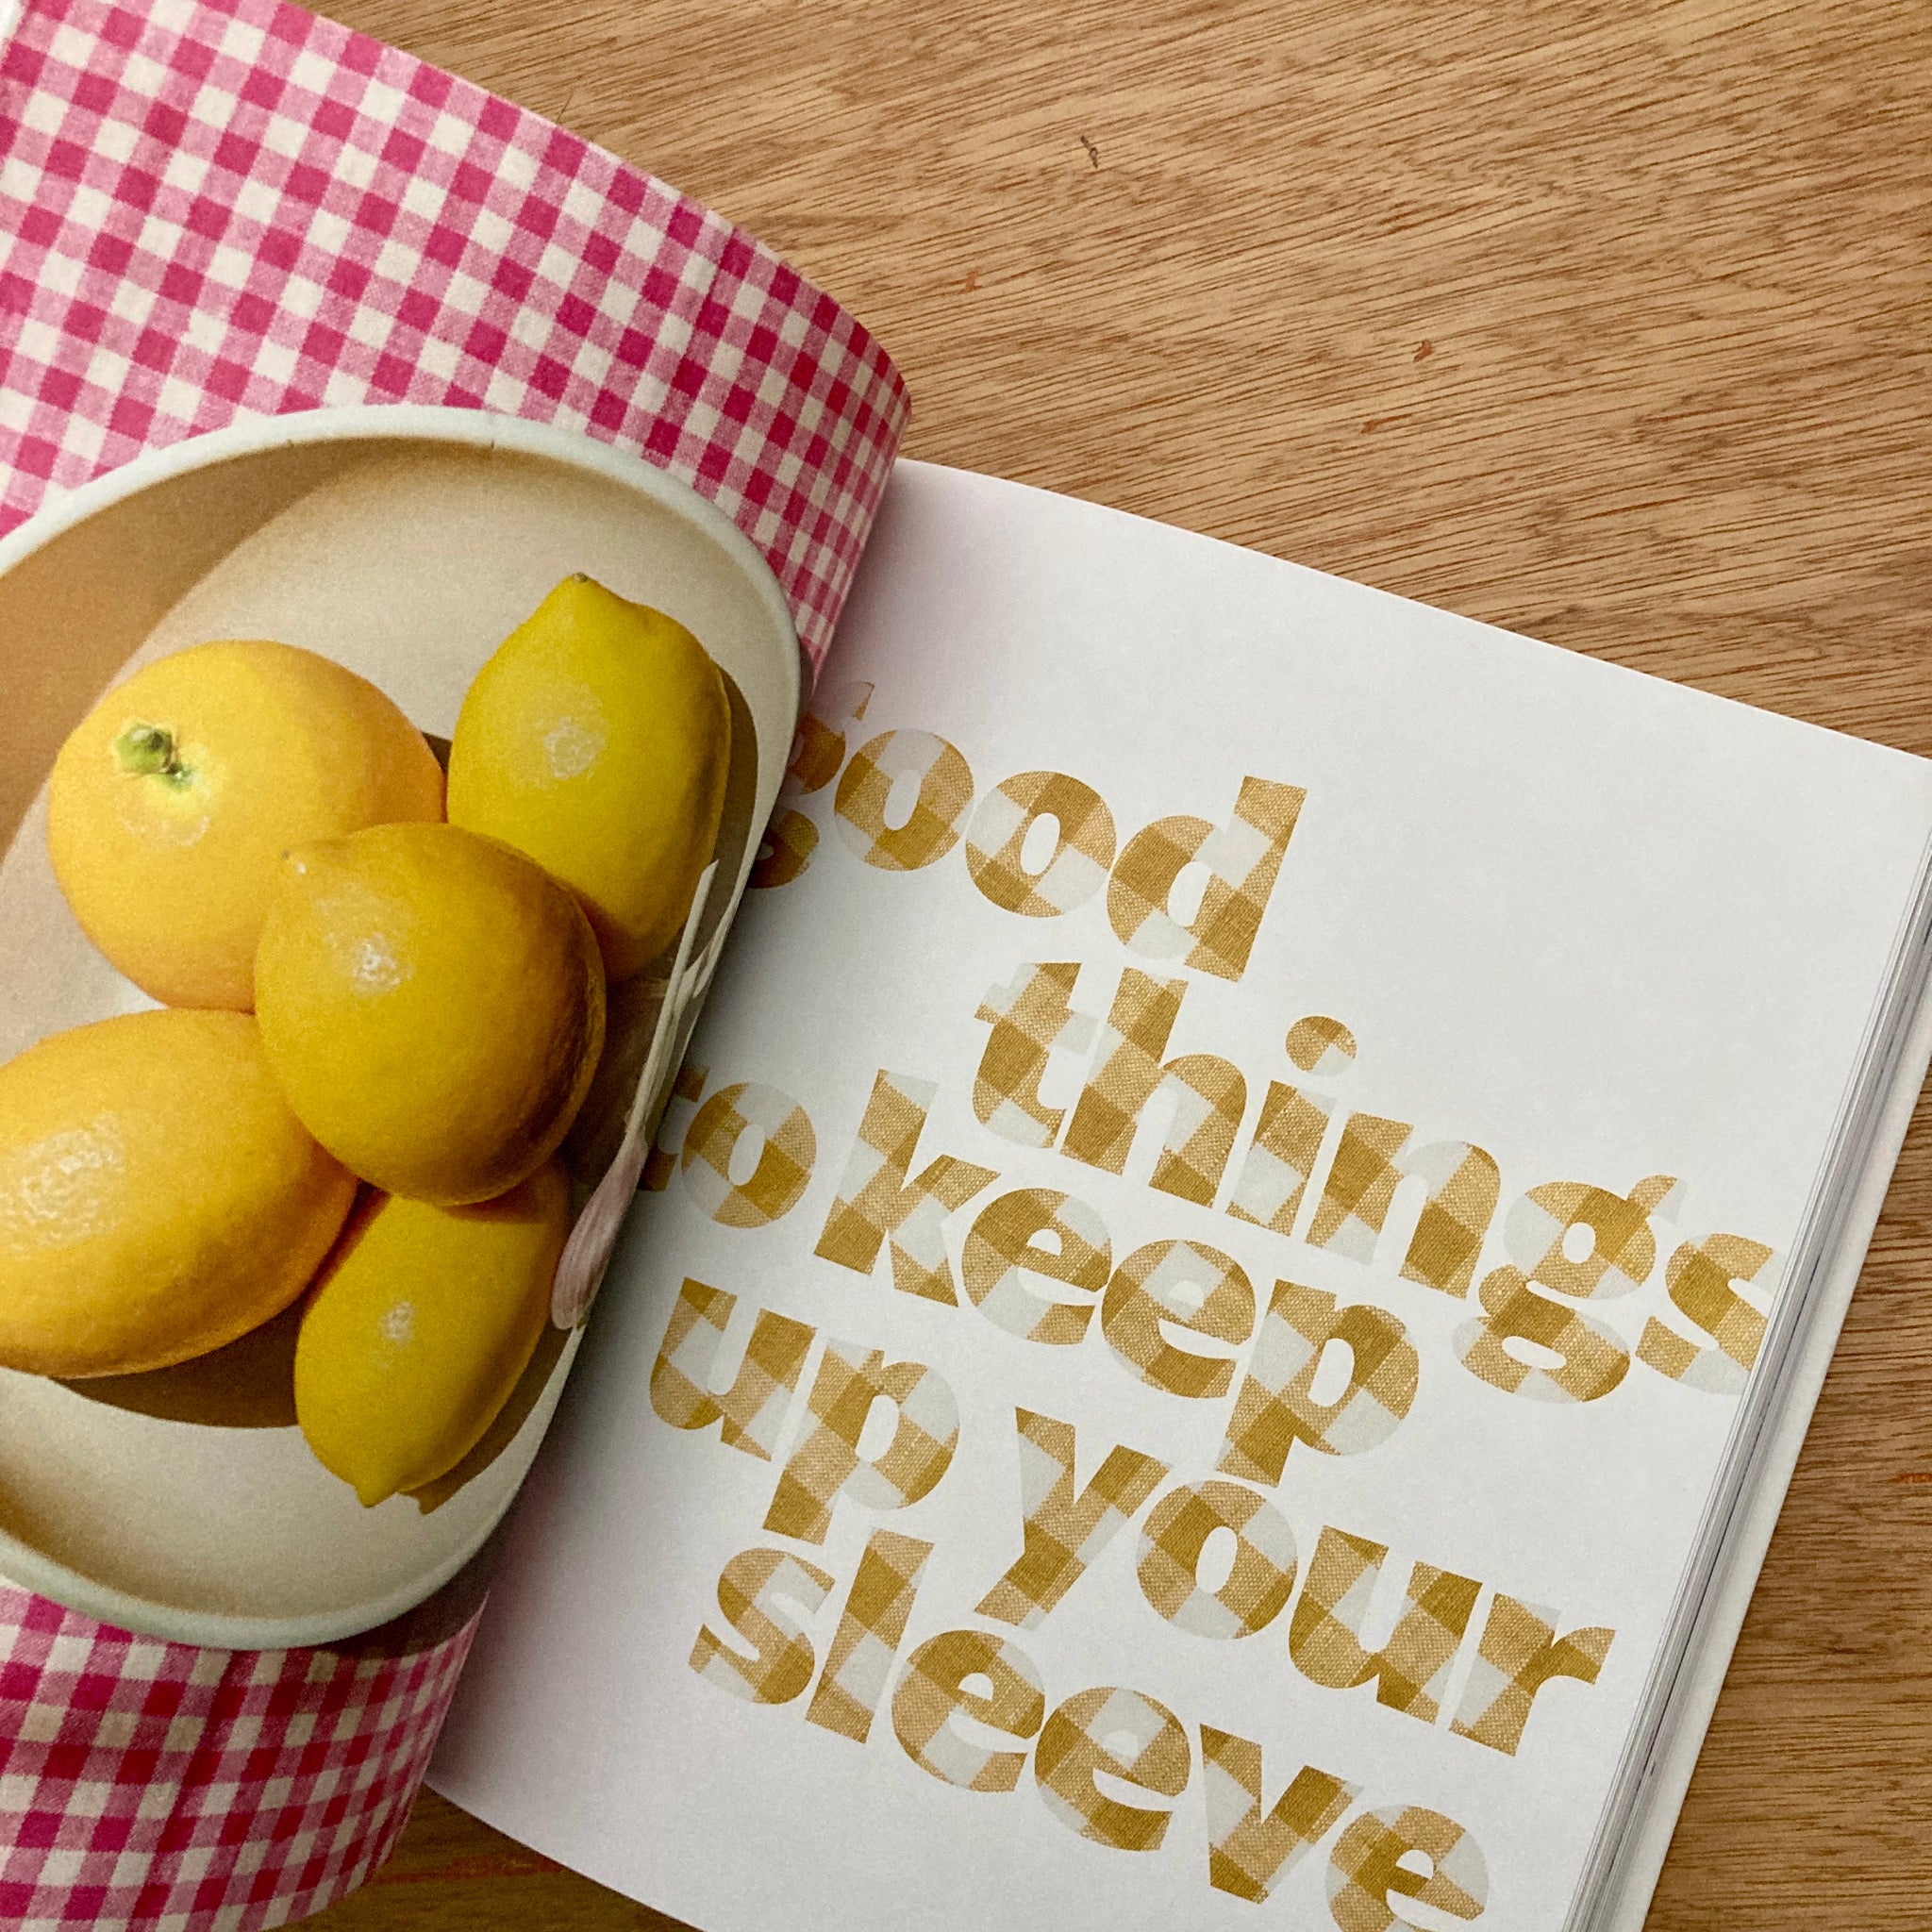 good
things
to keep
up your
sleeve